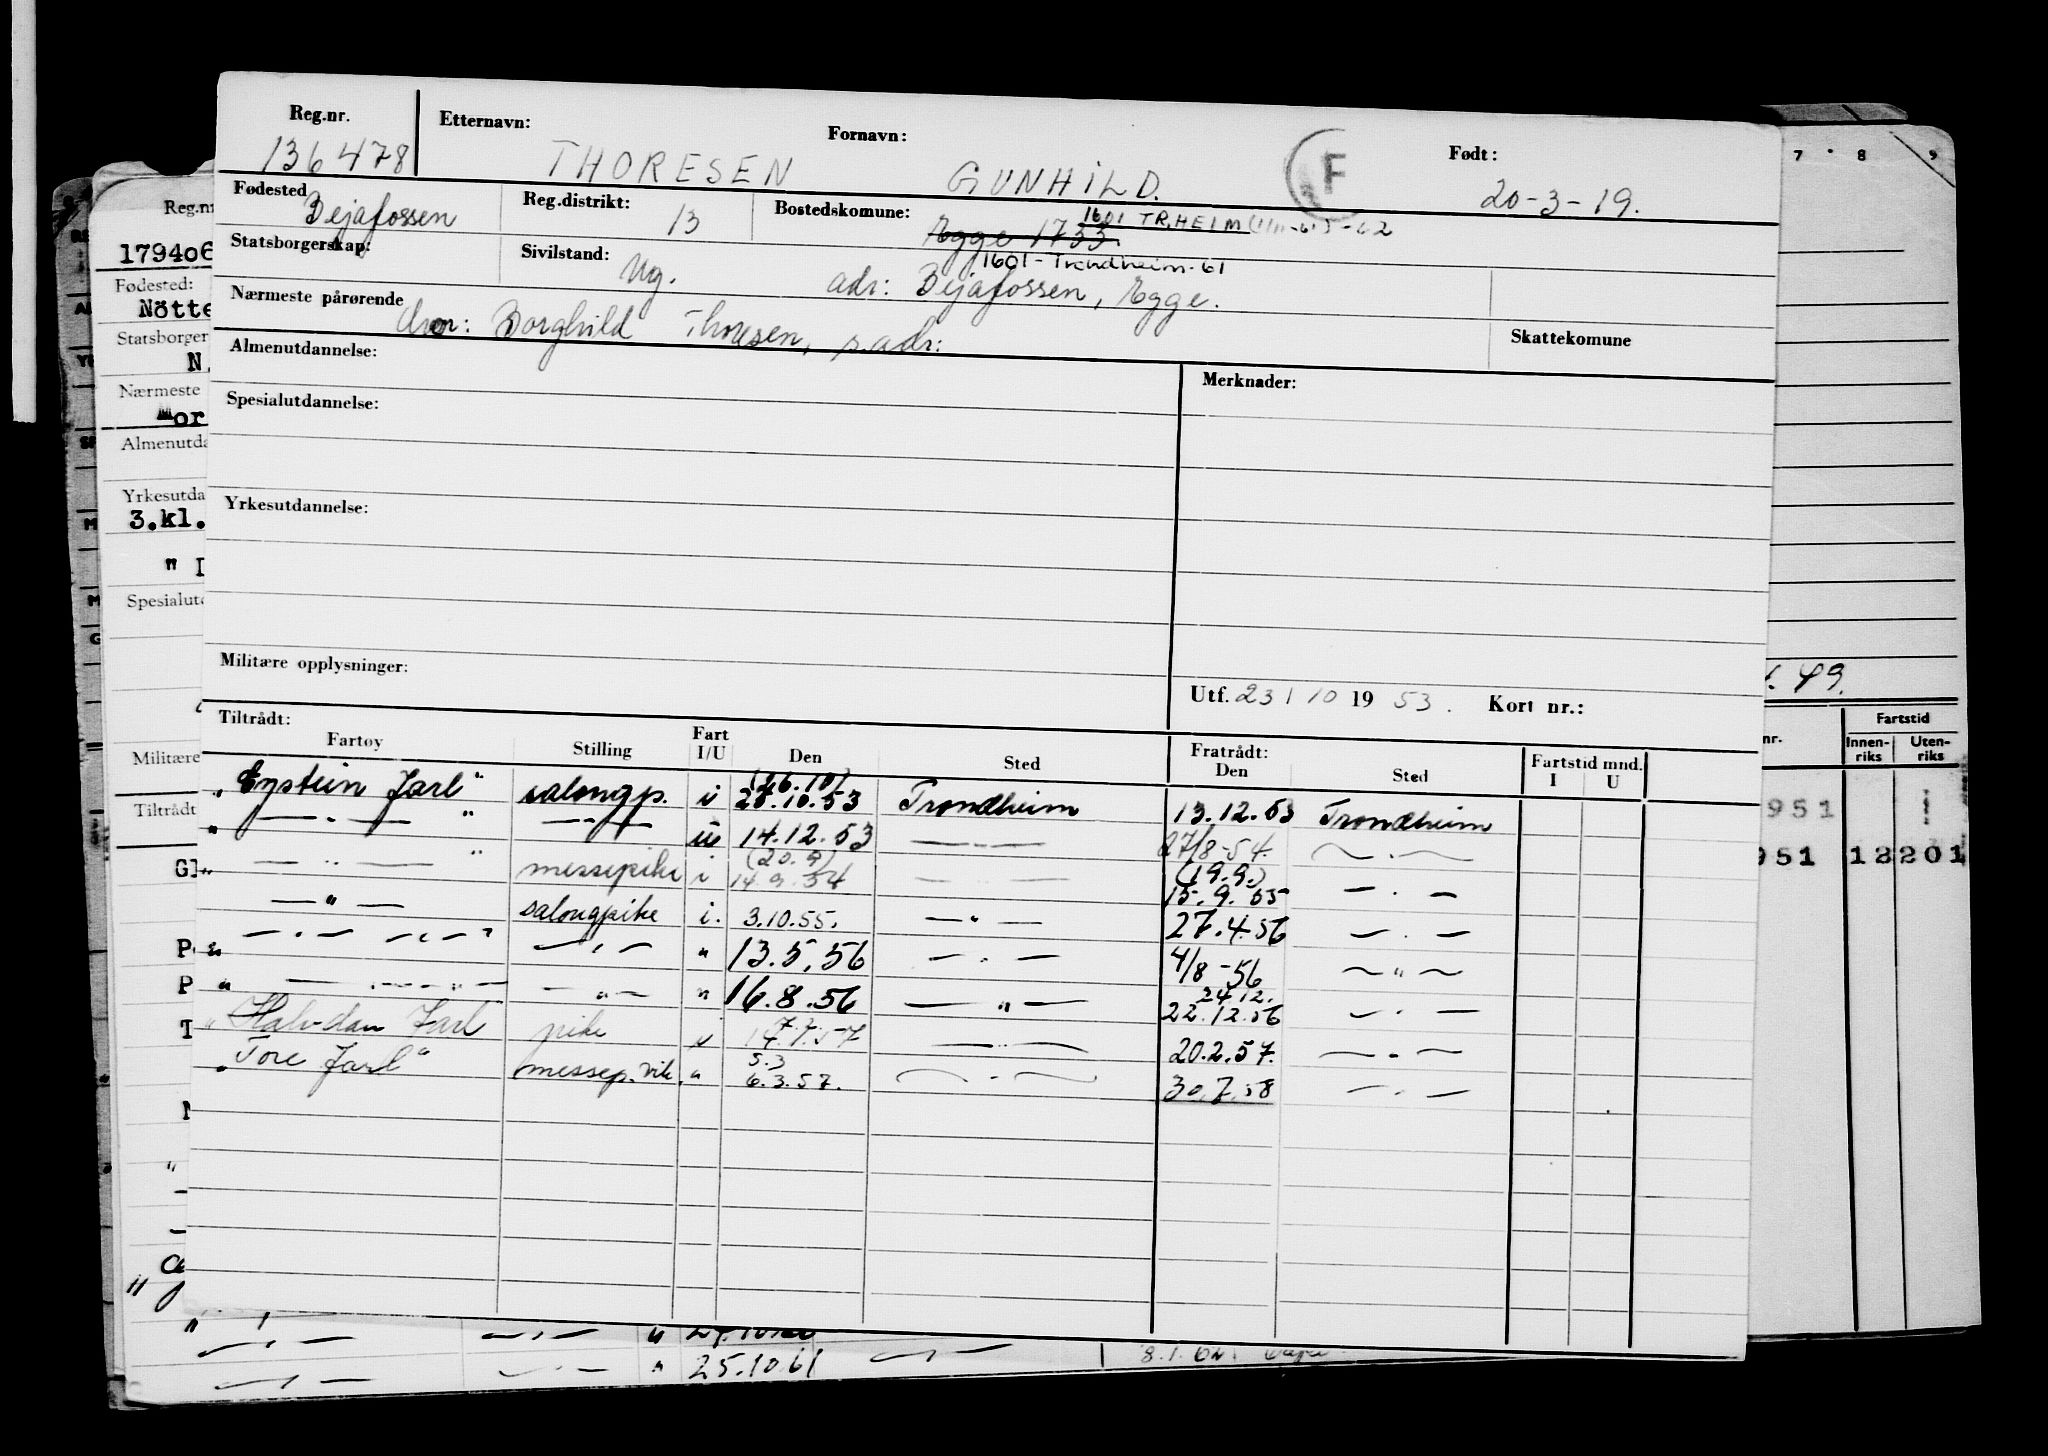 Reg.nr. Etternavn: Fornavn: F Født:
136478 THORESEN GUNHILD. 20-3-19.
Fødested Bejafossen Reg.distrikt: 13 Bostedskomune: Egge 1733. 1601 TR.HEIM
1601-Trondheim-61
Statsborgerskap: Sivilstand: Ug. adr: Bejafossen, Egge.
Nærmeste pårørende Mor: Borghild Thoresen, s.adr: Skattekomune
Almenutdannelse: Merknader:
Spesialutdannelse:
Yrkesutdannelse:
Militære opplysninger:
Utf. 23 / 10 19 53. Kort nr.:
Tiltrådt: Fratrådt: Fartstid mnd.
Fartøy Stilling Fart I/U Den Sted Den Sted I U
"Eystein Jarl" salongp. i (26.10) Trondheim 13.12.53 Trondheim
" — " — " — " — 14.12.53 — " — 27/8-54. — " —
— " — " messepike i (20.9) 14.9.54 — " — (19.9.) 15.9.55 — " —
— " — salongpike i. 3.10.55. — " — 27.4.56 — " —
" — " — — " — " 13.5.56 — " — 4/8-56 — " —
" — " — — " — " 16.8.56 — " — 24.12. 22.12.56 — " —
"Halvdan Jarl pike — " — 20.2.57. — " —
"Tore Jarl" messep.vik. " 5.3 6.3.57. — " — 30.7.58 — " —
Reg.nr
179406
Fødested:
Nötte
Statsborger
N.
Nærmeste
or
Almenutda
Yrkesutda
3.kl.
" I
Spesialut
Militære
Tiltrådt
Gl
P
P
T
7 8 9
49.
nr. Fartstid
Innen-riks Uten-riks
951
951 12201
— " — — " — "
— " — — " — " 25.10.61 — " — 8.1.62